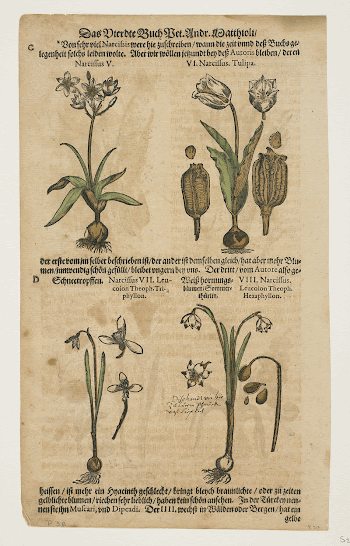 Das Vierdte Buch Pet. Andr. Matthioli/
C
Von sehr viel Narcissis were hie zuschreiben/ wann die zeit vnnd deß Buchs ge-
legenheit solchs leiden wolte. Aber wir wöllen jetzundt bey deß Autoris bleiben/ deren
Narcissus V. VI. Narcissus. Tulipa.
der erste vom jm selber beschrieben ist/ der ander ist demselbẽn gleich/ hat aber mehr Blu-
men/ inwendig schön gefüllt/ bleibet vngern bey vns. Der dritt/ vom Autore also ge-
D
Schneetropffen. Narcissus VII. Leu-
coion Theoph. Tri-
phyllon.
Weiß hornungs-
blumen/
VIII. Narcissus.
Leucoion Theoph.
Hexaphyllon.
heissen/ ist mehr ein Hyacinth geschlecht/ bringt bleych braunlichte/ oder zu zeiten
gelblichte blumen/ riechen sehr lieblich/ haben kein schön ansehen. In der Türckey nen-
nen sie jhn Muscari, vnd Dipcadi. Der IIII. wechst in Wälden oder Bergen/ hat ein
gelbe